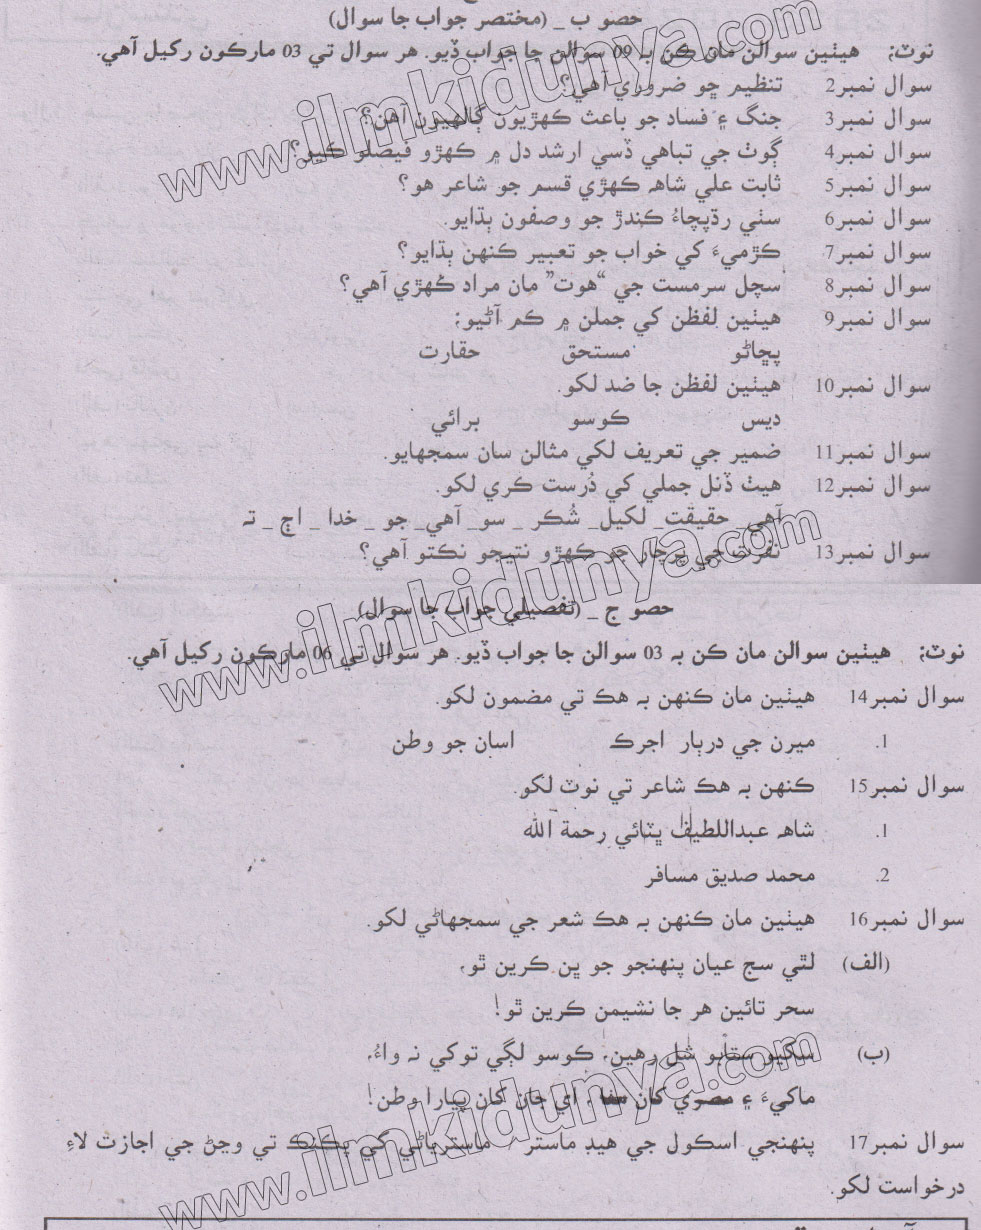 حصو ب _ (مختصر جواب جا سوال)
نوٽ: هيٺين سوالن مان ڪن بہ 09 سوالن جا جواب ڏيو. هر سوال تي 03 مارڪون رکيل آهي.
سوال نمبر2 تنظيم ڇو ضروري آهي؟
سوال نمبر3 جنگ ۽ فساد جو باعث ڪهڙيون ڳالهيون آهن؟
سوال نمبر4 ڳوٺ جي تباهي ڏسي ارشد دل ۾ ڪهڙو فيصلو ڪيو؟
سوال نمبر5 ثابت علي شاهہ ڪهڙي قسم جو شاعر هو؟
سوال نمبر6 سٺي رڌپچاءُ ڪندڙ جو وصفون ٻڌايو.
سوال نمبر7 ڪڙميءَ کي خواب جو تعبير ڪنهن ٻڌايو؟
سوال نمبر8 سچل سرمست جي “هوت” مان مراد ڪهڙي آهي؟
سوال نمبر9 هيٺين لفظن کي جملن ۾ ڪم آڻيو:
پڇاڻو مستحق حقارت
سوال نمبر10 هيٺين لفظن جا ضد لکو.
ديس ڪوسو برائي
سوال نمبر11 ضمير جي تعريف لکي مثالن سان سمجهايو.
سوال نمبر12 هيٺ ڏنل جملي کي دُرست ڪري لکو.
آهي_ حقيقت_ لکيل_ شُڪر _ سو_ آهي_ جو _ خدا _ اڄ _ تہ
سوال نمبر13 نفرت جي پرچار جو ڪهڙو نتيجو نڪتو آهي؟
حصو ج _ (تفصيلي جواب جا سوال)
نوٽ: هيٺين سوالن مان ڪن بہ 03 سوالن جا جواب ڏيو. هر سوال تي 06 مارڪون رکيل آهي.
سوال نمبر14 هيٺين مان ڪنهن بہ هڪ تي مضمون لکو.
1. ميرن جي دربار اجرڪ اسان جو وطن
سوال نمبر15 ڪنهن بہ هڪ شاعر تي نوٽ لکو.
1. شاهہ عبداللطيف ڀٽائي رحمة الله
2. محمد صديق مسافر
سوال نمبر16 هيٺين مان ڪنهن بہ هڪ شعر جي سمجهاڻي لکو.
(الف) لٿي سج عيان پنهنجو جو ڀن ڪرين ٿو،
سحر تائين هر جا نشيمن ڪرين ٿو!
(ب) سکيو ستابو شل رهين، ڪوسو لڳي توکي نہ واءُ،
ماکيءَ ۽ مصري کان سفا، اي جان کان پيارا وطن!
سوال نمبر17 پنهنجي اسڪول جي هيڊ ماستر / ماسترياڻي کي پڪنڪ تي وڃڻ جي اجازت لاءِ
درخواست لکو.
www.ilmkidunya.com
www.ilmkidunya.com
www.ilmkidunya.com